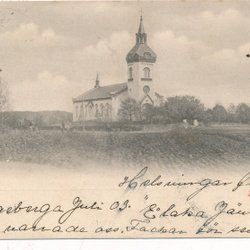 Helsningar f
aeberga Juli 03. "Elaka Jä
narrade oss. Tackar för s